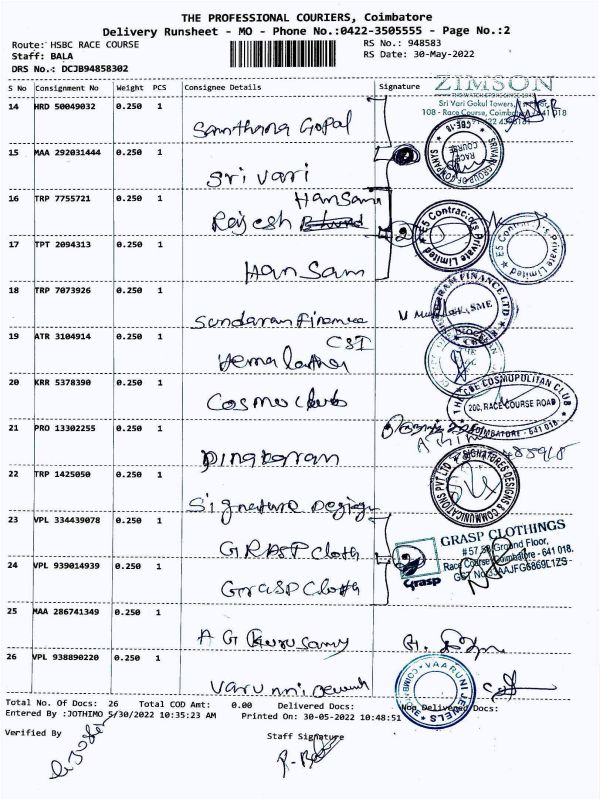 THE PROFESSIONAL COURIERS, Coimbatore
Delivery Runsheet - MO - Phone No.:0422-3505555 - Page No.:2
Route: HSBC RACE COURSE
RS No.: 948583
Staff: BALA
RS Date: 30-May-2022
DRS No.: DCJB94858302
S No Consignment No Weight PCS Consignee Details Signature
ZIMSON
Sri Vari Gokul Towers,
108 - Race Course, Coimbatore 641 018
14 HRD 50049032 0.250 1
Gopal
15 MAA 292031444 0.250 1
Sri vari
SRIVARI GROUP OF COMPANYS
RACE COURSE
CBE-18
16 TRP 7755721 0.250 1
Hansam
Rajesh
2
E5 Contractors Private Limited
E5 Contractors Private Limited
17 TPT 2094313 0.250 1
Han Sam
18 TRP 7073926 0.250 1
Sundaram Finance
SUNDARAM FINANCE LTD
SME
19 ATR 3104914 0.250 1
CSI
Hemalatha
20 KRR 5378390 0.250 1
Cosmo club
THE CBE COSMOPOLITAN CLUB
200, RACE COURSE ROAD
COIMBATORE - 641 018
21 PRO 13302255 0.250 1
Dinakaran
22 TRP 1425050 0.250 1
Signature Design
SIGNATURES DESIGNS & COMMUNICATIONS PVT LTD
23 VPL 334439078 0.250 1
GRASP Cloth
GRASP CLOTHINGS
#57,58 Ground Floor,
Race Course, Coimbatore - 641 018.
Grasp
24 VPL 939014939 0.250 1
GrasP Cloth
25 MAA 286741349 0.250 1
A G Gurusamy
26 VPL 938890220 0.250 1
VAARUNI JEWELS
Total No. Of Docs: 26 Total COD Amt: 0.00 Delivered Docs: Non Delivered Docs:
Entered By :JOTHIMO 5/30/2022 10:35:23 AM Printed On: 30-05-2022 10:48:51
Verified By
Staff Signature